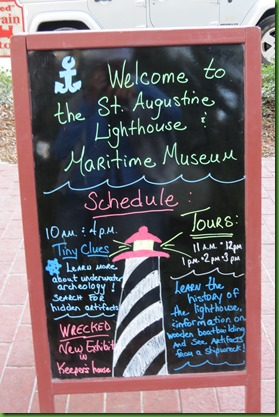 Welcome to
the St. Augustine
Lighthouse &
Maritime Museum
Schedule:
10 A.M. & 4 P.M.
Tiny Clues
Learn more
about underwater
archaeology!
Search for
hidden artifacts
WRECKED
New Exhibit
in
Keeper's house
Tours:
11 A.M. - 12 pm
1 pm - 2 pm - 3 pm
Learn the
history of
the lighthouse,
information on
wooden boatbuilding
and see artifacts
from a shipwreck!